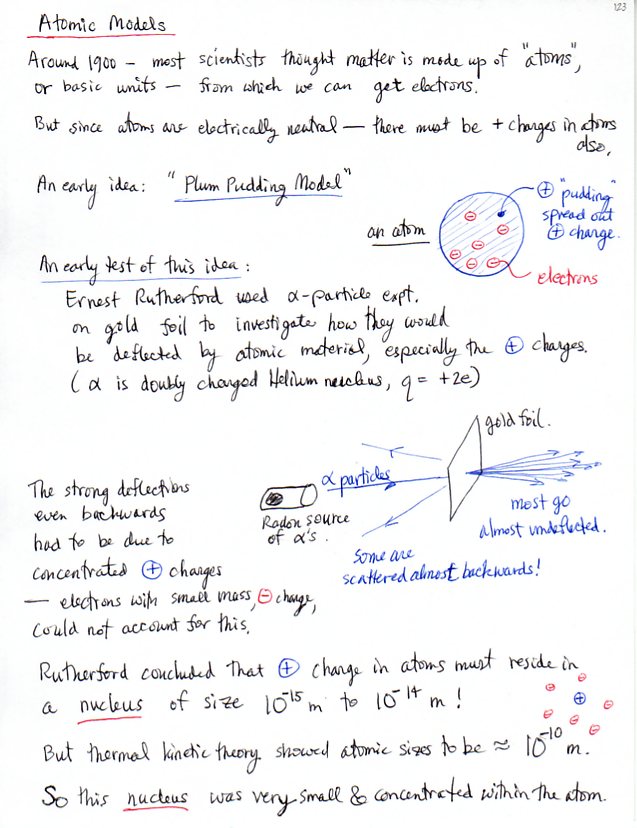 123
Atomic Models
Around 1900 – most scientists thought matter is made up of "atoms",
or basic units – from which we can get electrons.
But since atoms are electrically neutral – there must be + charges in atoms
also.
An early idea: "Plum Pudding Model"
an atom
⊕ "pudding"
spread out
⊕ charge.
electrons
An early test of this idea:
Ernest Rutherford used α-particle expt.
on gold foil to investigate how they would
be deflected by atomic material, especially the ⊕ charges.
(α is doubly charged Helium nucleus, q = +2e)
gold foil.
α particles
Radon source
of α's.
most go
almost undeflected.
Some are
scattered almost backwards!
The strong deflections
even backwards
had to be due to
concentrated ⊕ charges
– electrons with small mass, ⊖ charge,
could not account for this.
Rutherford concluded that ⊕ charge in atoms must reside in
a nucleus of size 10⁻¹⁵ m to 10⁻¹⁴ m !
But thermal kinetic theory showed atomic sizes to be ≈ 10⁻¹⁰ m.
So this nucleus was very small & concentrated within the atom.